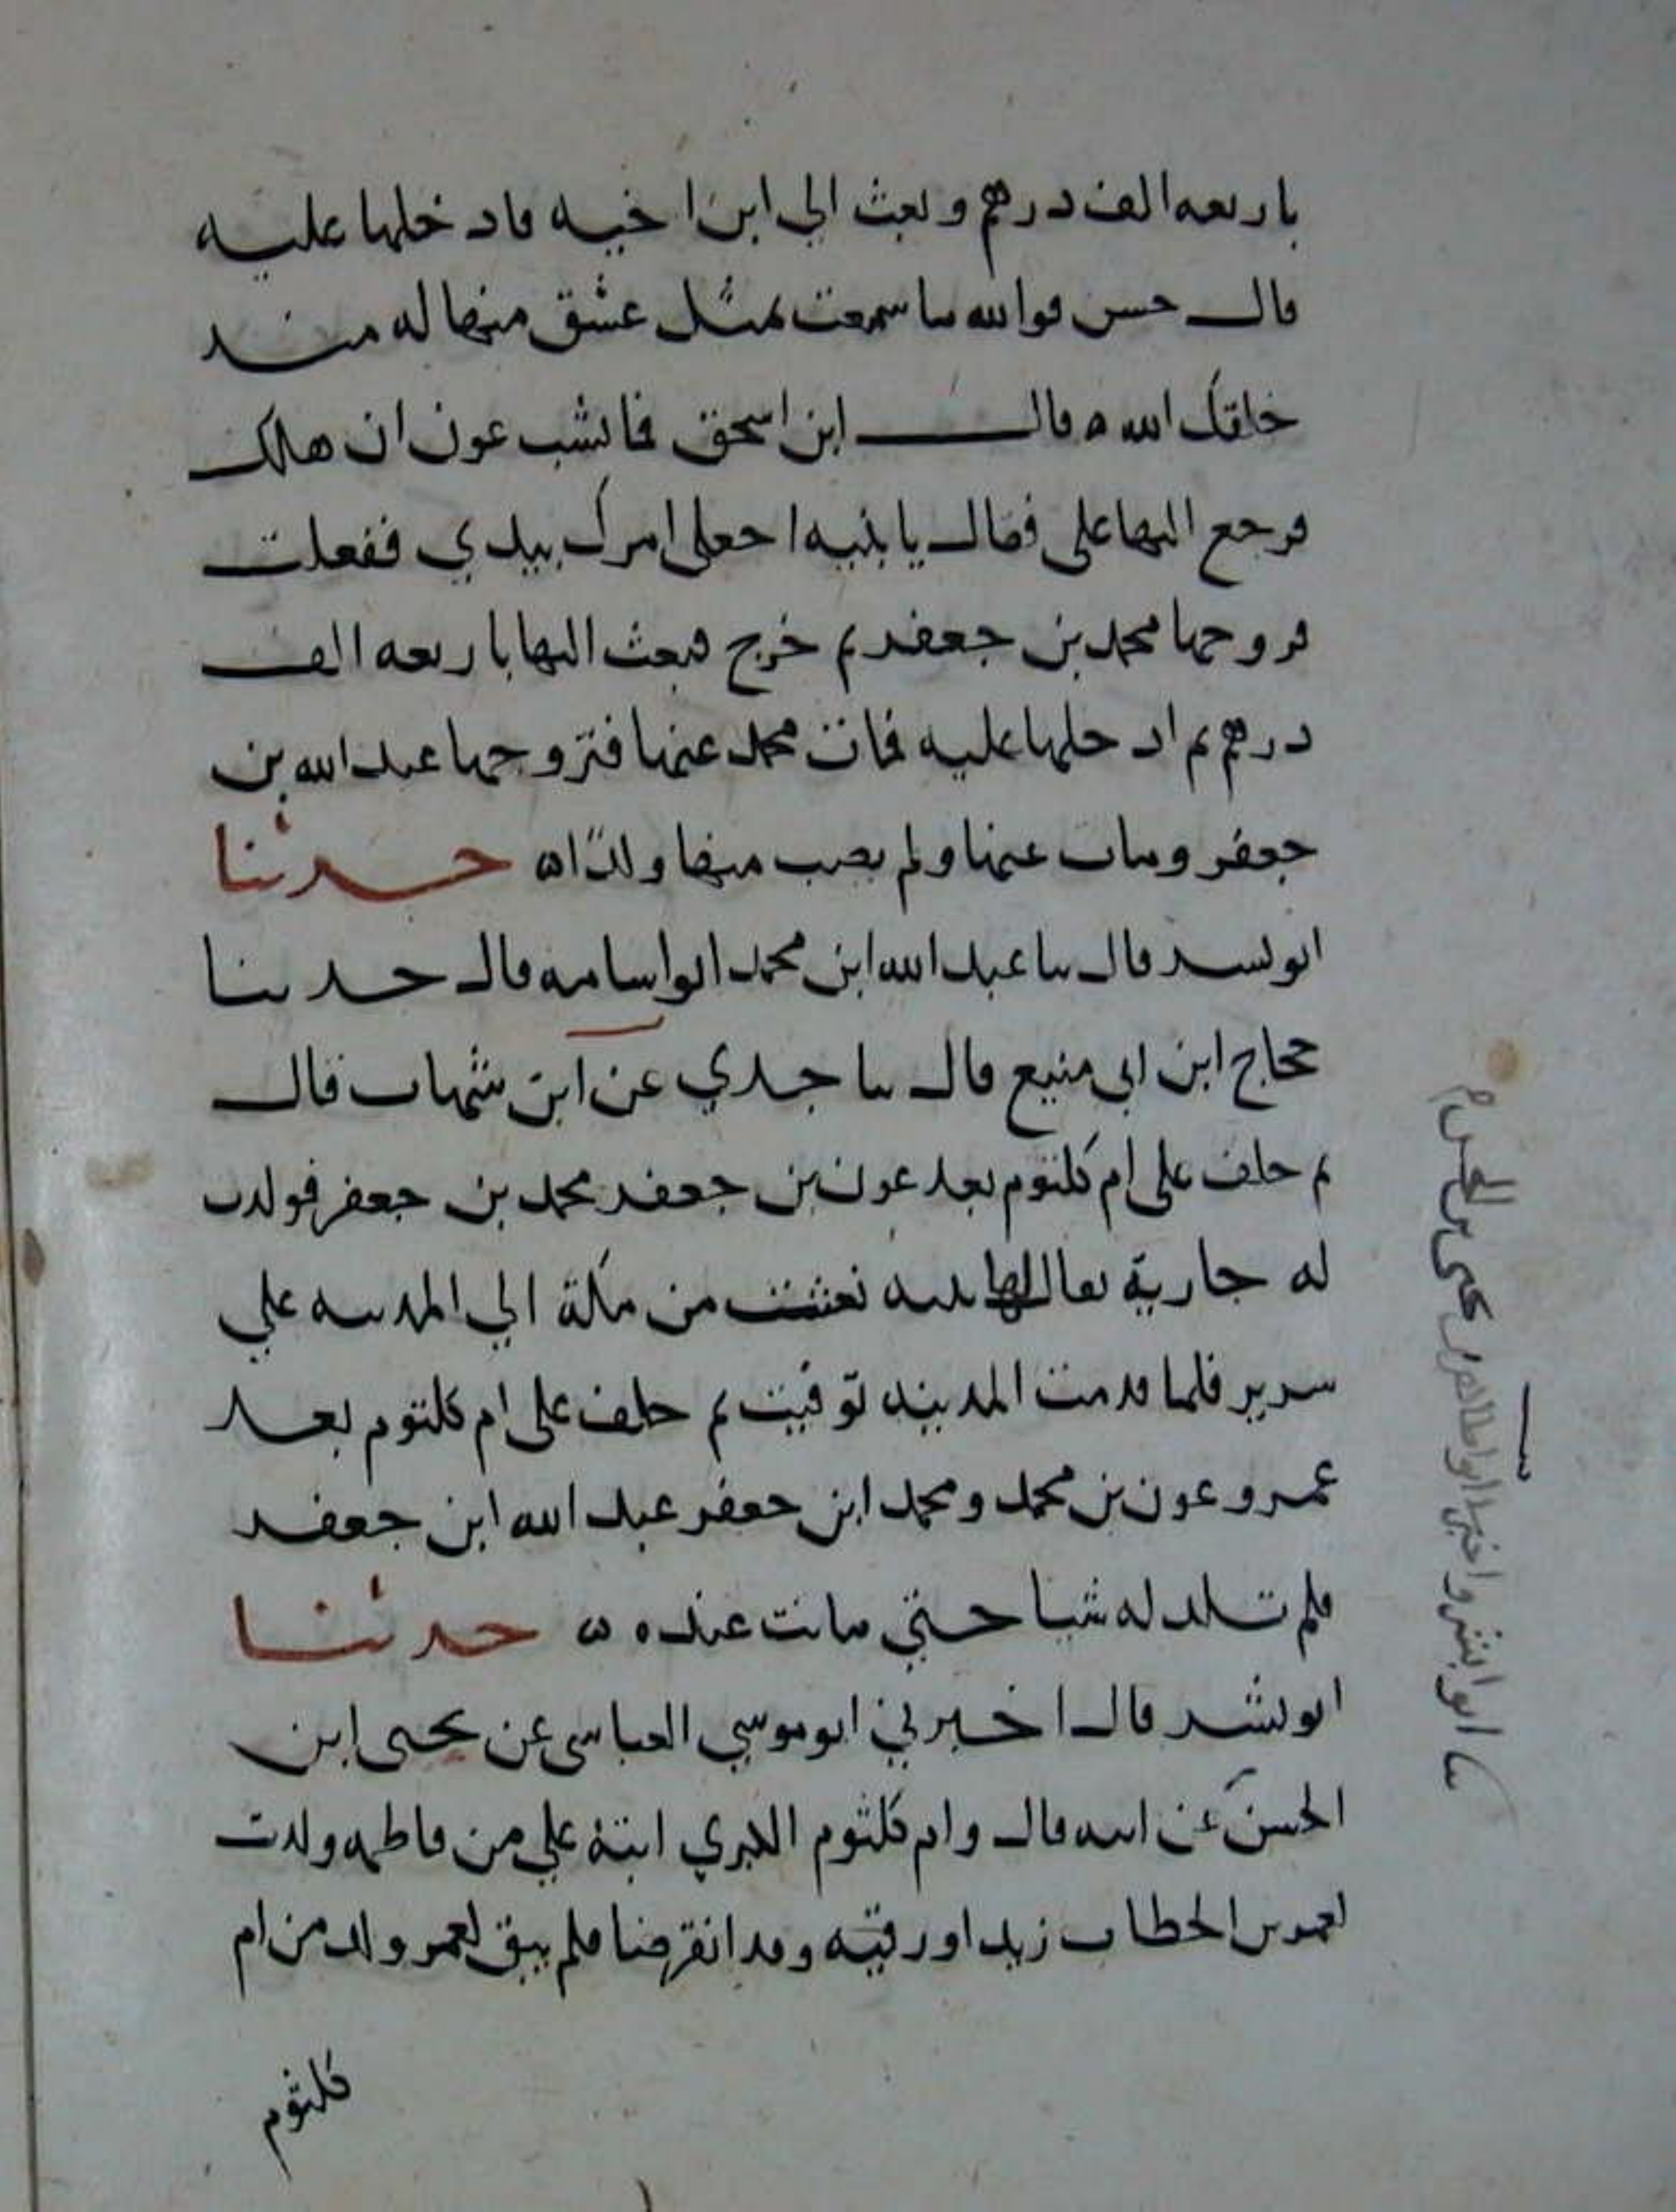 باربعه الف درهم وبعث الي ابن اخيه فادخلها عليه
قال حسن فوالله ما سمعت بمثل عشق منها له منذ
خلقك الله ه قال ابن اسحق فما نشب عون ان هلك
فرجع اليها على فقال يا بنيه اجعلى امرك بيدي ففعلت
فزوجها محمد بن جعفر ثم خرج فبعث اليها باربعه الف
درهم ثم ادخلها عليه فمات محمد عنها فتزوجها عبد الله بن
جعفر ومات عنها ولم يصب منها ولدًا ه حدثنا
ابو بشر قال ثنا عبد الله ابن محمد ابو اسامه قال حدثنا
حجاج ابن ابي منيع قال ثنا جدي عن ابن شهاب قال
ثم خلف على ام كلثوم بعد عون بن جعفر محمد بن جعفر فولدت
له جارية يقال لها بثنه نعشت من مكة الي المدينه علي
سرير فلما قدمت المدينه توفيت ثم خلف على ام كلثوم بعد
عمر وعون بن محمد ومحمد ابن جعفر عبد الله ابن جعفر
فلم تلد له شيا حتي ماتت عنده ه حدثنا
ابو بشر قال اخبرني ابو موسي العباسي عن يحيى ابن
الحسن عن ابيه قال وام كلثوم الكبري ابنة علي من فاطمه ولدت
لعمر بن الخطاب زيدا ورقيه وقد انقرضا فلم يبق لعمر ولد من ام
كلثوم
ثنا ابو بشر واخبرنا ابو طاهر يحيى بن الحسن